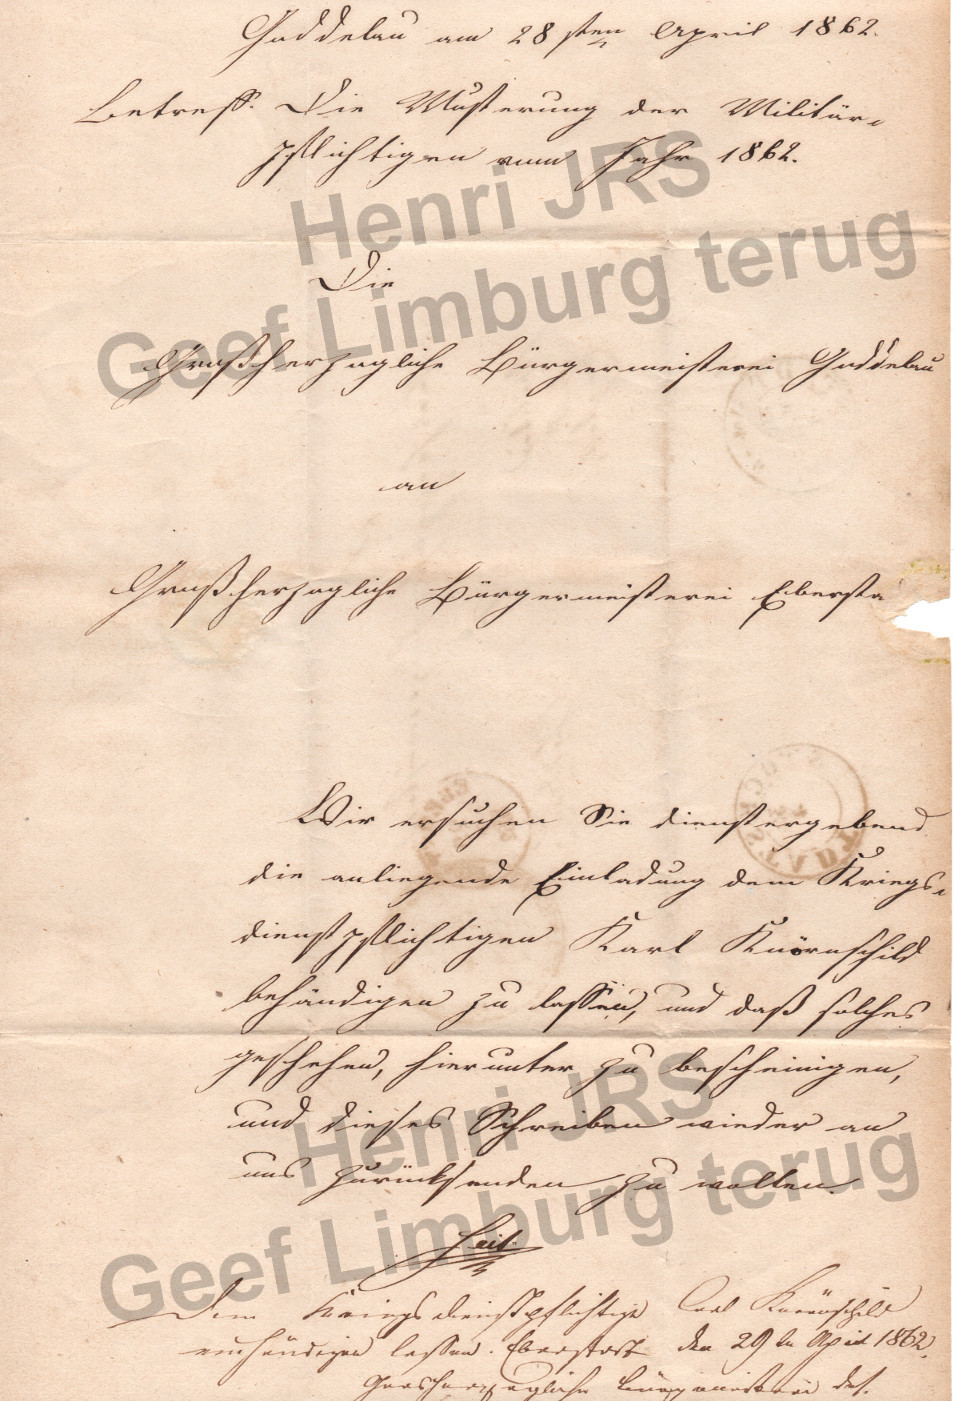 Goddelau am 28sten April 1862.
Betreff: Die Musterung der Militär-
pflichtigen vom Jahr 1862.
Henri JRS
Geef Limburg terug
Die
Großherzogliche Bürgermeisterei Goddelau
an
Großherzogliche Bürgermeisterei Ebersta
Wir ersuchen Sie dienstergebend
die anliegende Einladung dem Kriegs-
dienstpflichtigen Karl Knörnschild
behändigen zu lassen, und daß solches
geschehen, hierunter zu bescheinigen,
und dieses Schreiben wieder an
uns zurücksenden zu wollen.
Henri JRS
Geef Limburg terug
Dem Kriegsdienstpflichtige Carl
einhändigen lassen. Eberstadt den 29tn April 1862
Großherzogliche Bürgermeisterei das.